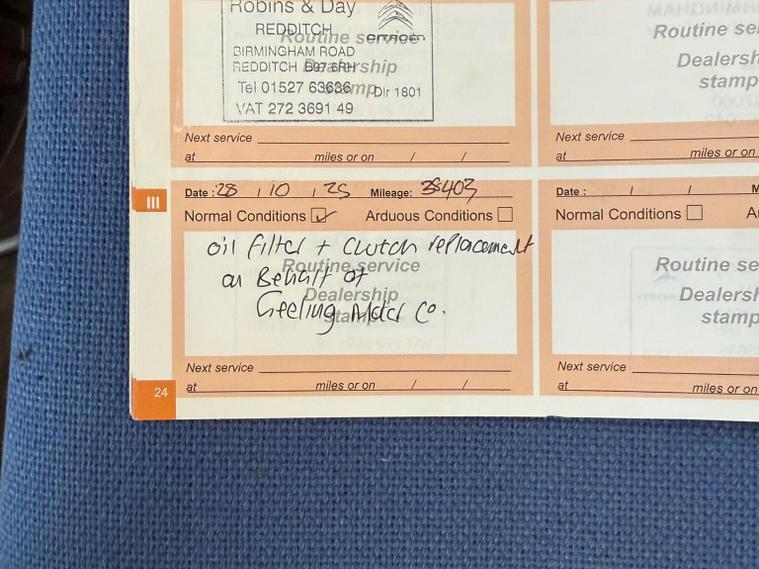 Robins & Day
REDDITCH
CITROËN
BIRMINGHAM ROAD
REDDITCH B97 6RH
Tel 01527 63636 Dlr 1801
VAT 272 3691 49
Routine service
Dealership
stamp
Next service
at miles or on / /
Routine se
Dealersh
stamp
Next service
at miles or on
III
Date : 28 / 10 / 25 Mileage: 38403
Normal Conditions ✓ Arduous Conditions
oil filter + Clutch replacement
on Behalf of
Geeling Motor Co.
Routine service
Dealership
stamp
Next service
at miles or on / /
Date : / / M
Normal Conditions A
Routine se
Dealersh
stamp
Next service
at miles or on
24